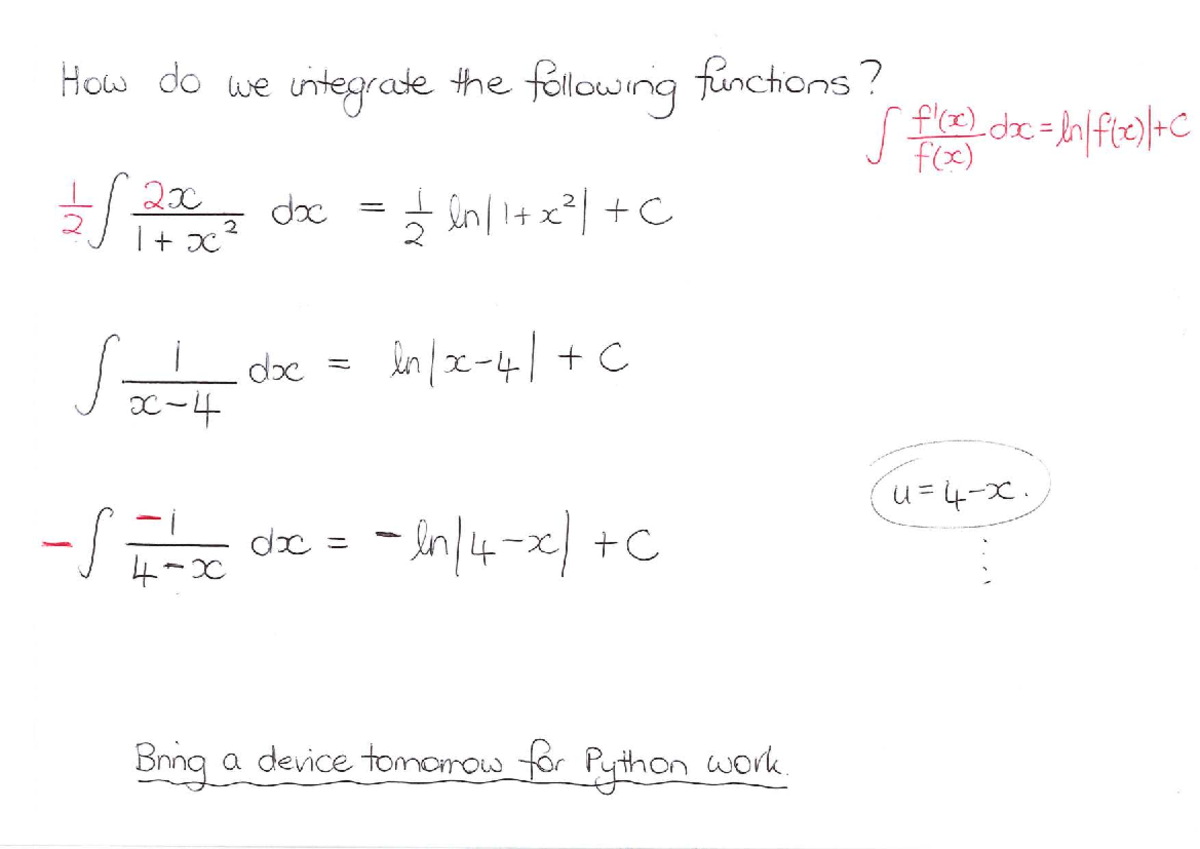 How do we integrate the following functions?
∫ f'(x)/f(x) dx = ln|f(x)| + C
1/2 ∫ 2x/(1 + x²) dx = 1/2 ln|1 + x²| + C
∫ 1/(x - 4) dx = ln|x - 4| + C
u = 4 - x.
- ∫ -1/(4 - x) dx = - ln|4 - x| + C
Bring a device tomorrow for Python work.